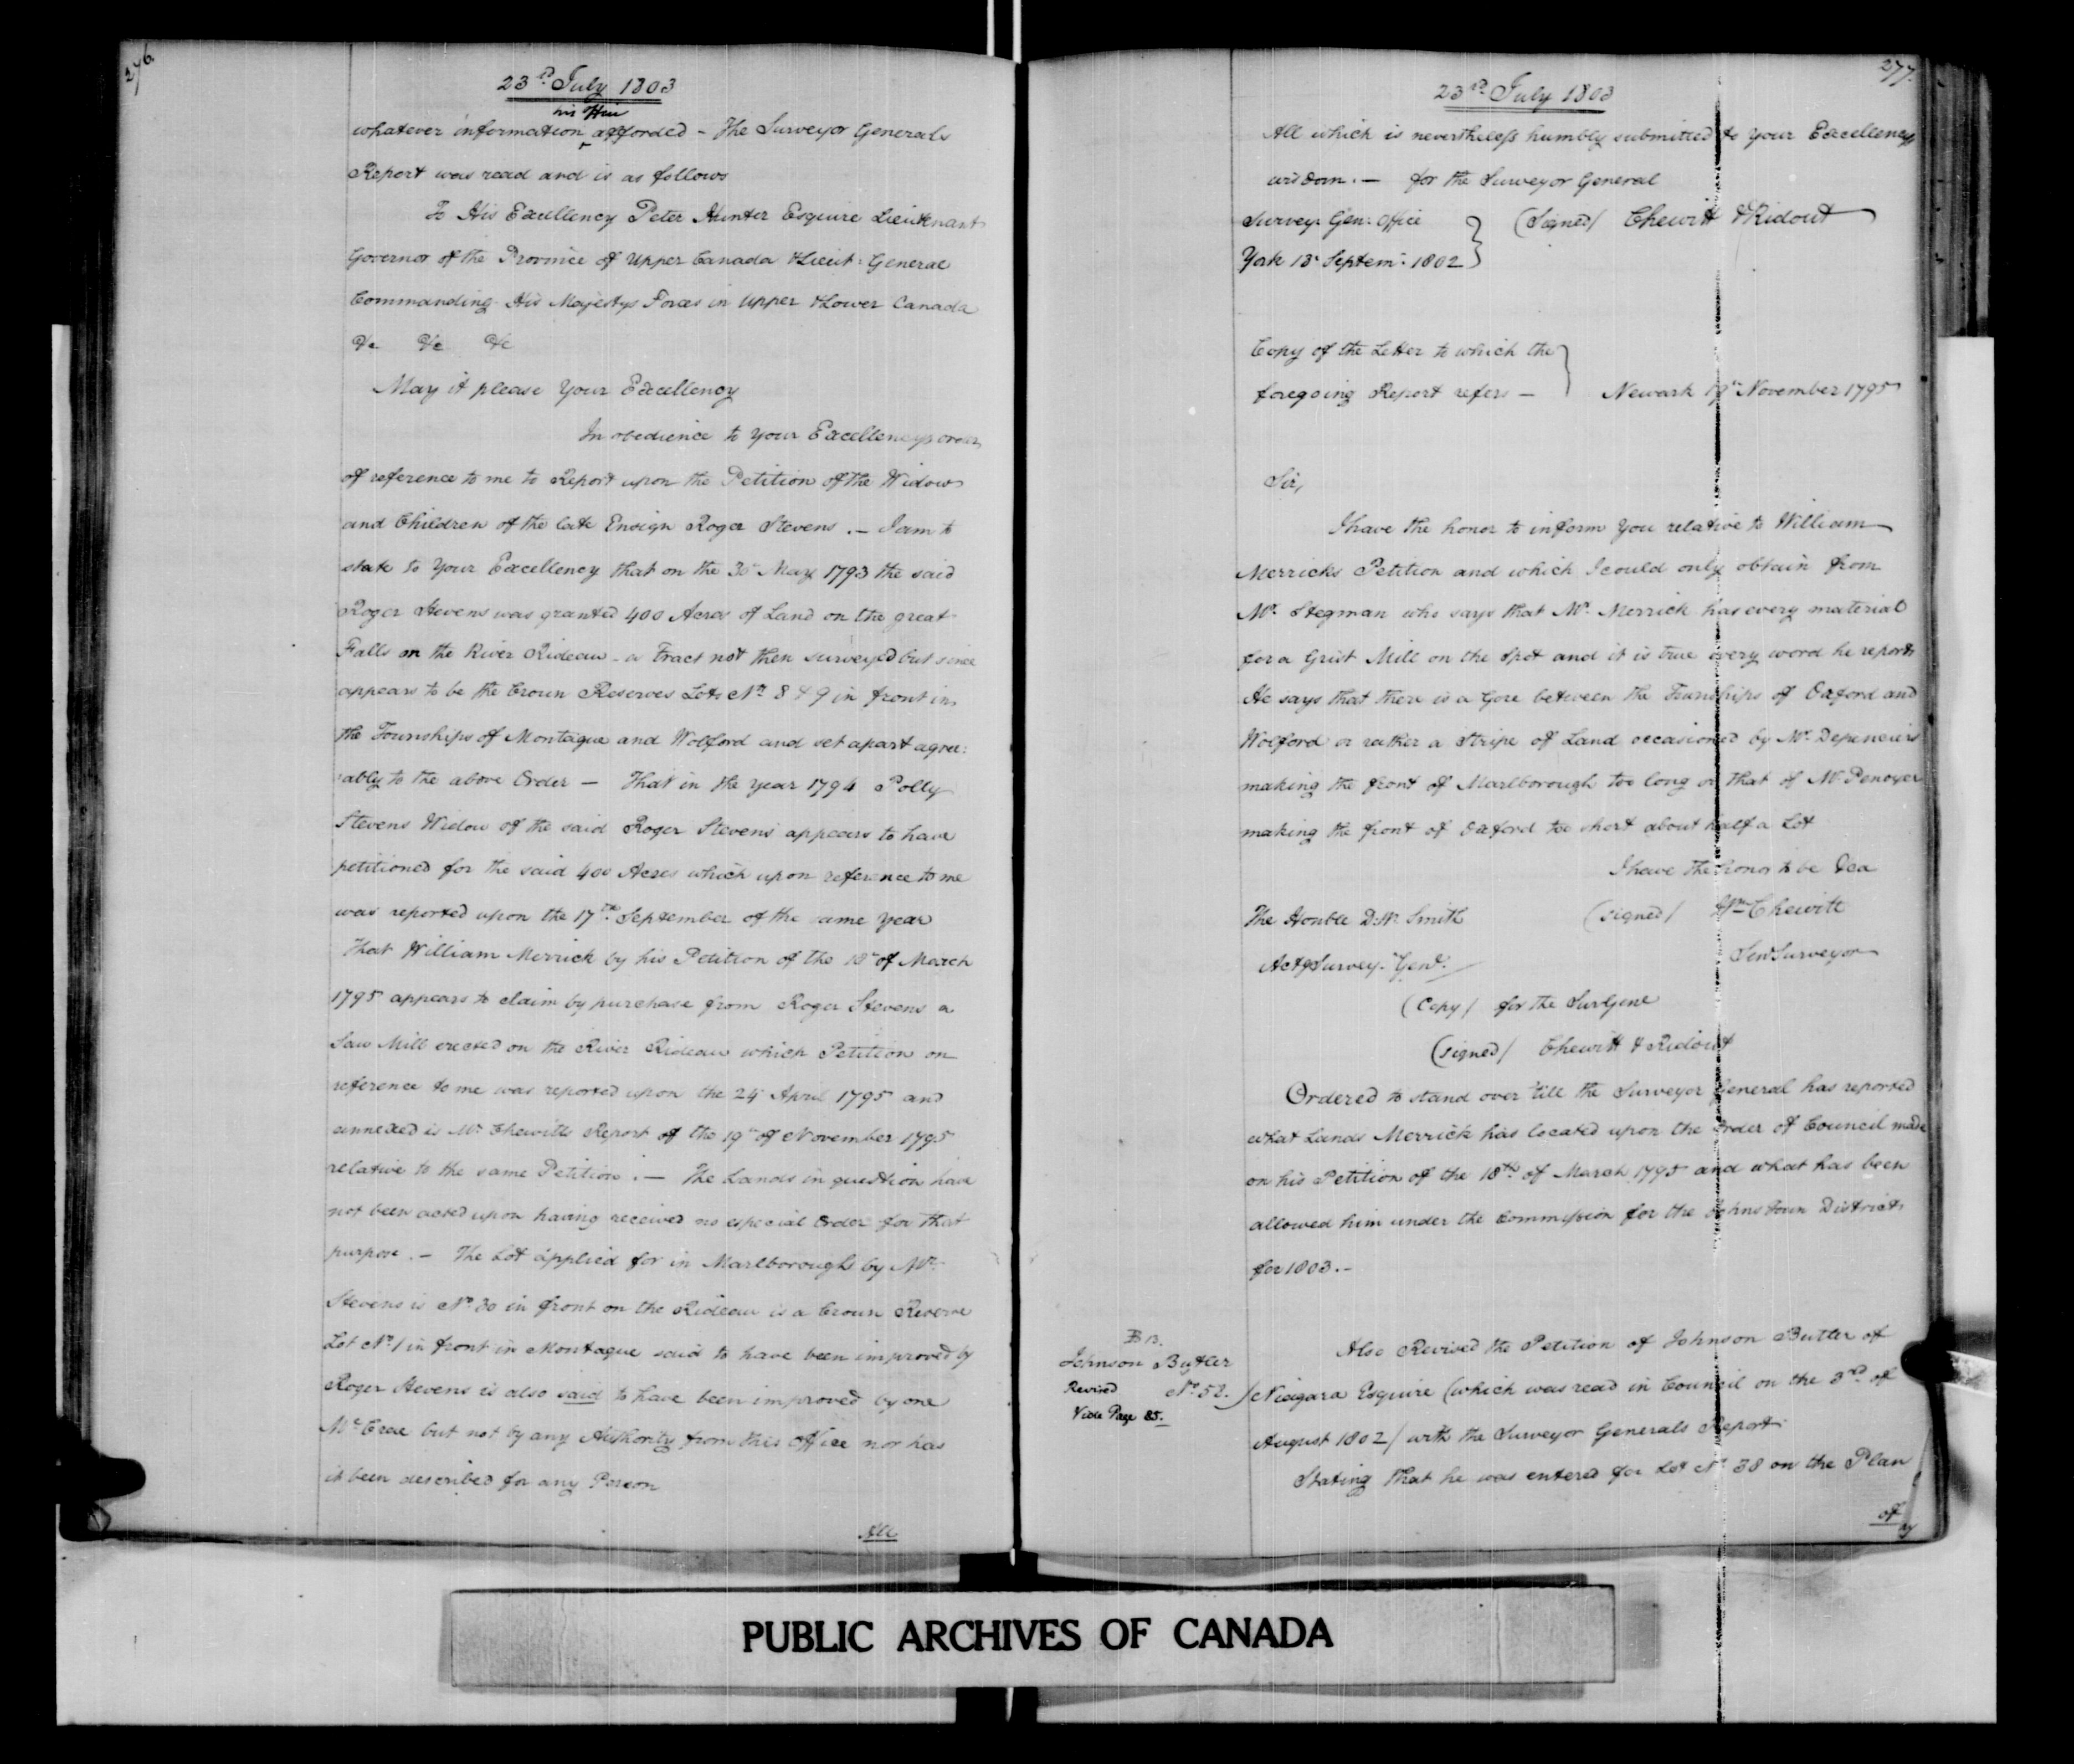 276.
23rd July 1803
his Office
whatever information afforded - The Surveyor Generals
Report was read and is as follows
To His Excellency Peter Hunter Esquire Lieutenant
Governor of the Province of Upper Canada & Lieut: General
Commanding His Majestys Forces in Upper & Lower Canada
&c &c &c
May it please Your Excellency
In obedience to Your Excellencys order
of reference to me to Report upon the Petition of the Widow
and Children of the late Ensign Roger Stevens. - I am to
state to Your Excellency that on the 30th May 1793 the said
Roger Stevens was granted 400 Acres of Land on the great
Falls on the River Rideau - a Tract not then surveyed but since
appears to be the Crown Reserves Lots No. 8 & 9 in front in
the Townships of Montague and Wolford and set apart agree:
ably to the above Order - That in the year 1794 Polly
Stevens Widow of the said Roger Stevens appears to have
petitioned for the said 400 Acres which upon reference to me
was reported upon the 17th September of the same Year
That William Merrick by his Petition of the 18th of March
1795 appears to claim by purchase from Roger Stevens a
Saw Mill erected on the River Rideau which Petition on
reference to me was reported upon the 24 April 1795 and
annexed is Mr Chewitts Report of the 19th of November 1795
relative to the same Petition. - The Lands in question have
not been acted upon having received no especial Order for that
purpose. - The Lot applied for in Marlborough by Mr.
Stevens is No 30 in front on the Rideau is a Crown Reserve
Lot No 1 in front in Montague said to have been improved by
Roger Stevens is also said to have been improved by one
McCrae but not by any Authority from this Office nor has
it been described for any Person
All
277.
23rd July 1803
All which is nevertheless humbly submitted to your Excellencys
wisdom. - for the Surveyor General
Survey: Gen: Office } (Signed/ Chewitt & Ridout
York 13 Septem: 1802 }
Copy of the Letter to which the }
foregoing Report refers - } Newark 19th November 1795
Sir,
I have the honor to inform You relative to William
Merricks Petition and which I could only obtain from
Mr. Stegman who says that Mr. Merrick has every material
for a Grist Mill on the Spot and it is true every word he reports
He says that there is a Gore between the Townships of Oxford and
Wolford or rather a Stripe of Land occasioned by Mr. Depenciers
making the front of Marlborough too long or that of Mr Penoyer
making the front of Oxford too short about half a Lot
I have the honor to be &ca
The Honble D. W. Smith (signed/ Wm Chewitt
Actg Survey. Genl. Senr Surveyor
(Copy/ for the Sur Genl
(signed/ Chewitt & Ridout
Ordered to stand over till the Surveyor General has reported
what Lands Merrick has located upon the Order of Council made
on his Petition of the 18th of March 1795 and what has been
allowed him under the Commission for the Johns Town District
for 1803. -
B 13.
Johnson Butler
Revised No. 52.
Vide Page 85.
Also Revised the Petition of Johnson Butler of
Niagara Esquire (which was read in Council on the 3rd of
August 1802/ with the Surveyor Generals Report
Stating that he was entered for Lot No 38 on the Plan
of
PUBLIC ARCHIVES OF CANADA